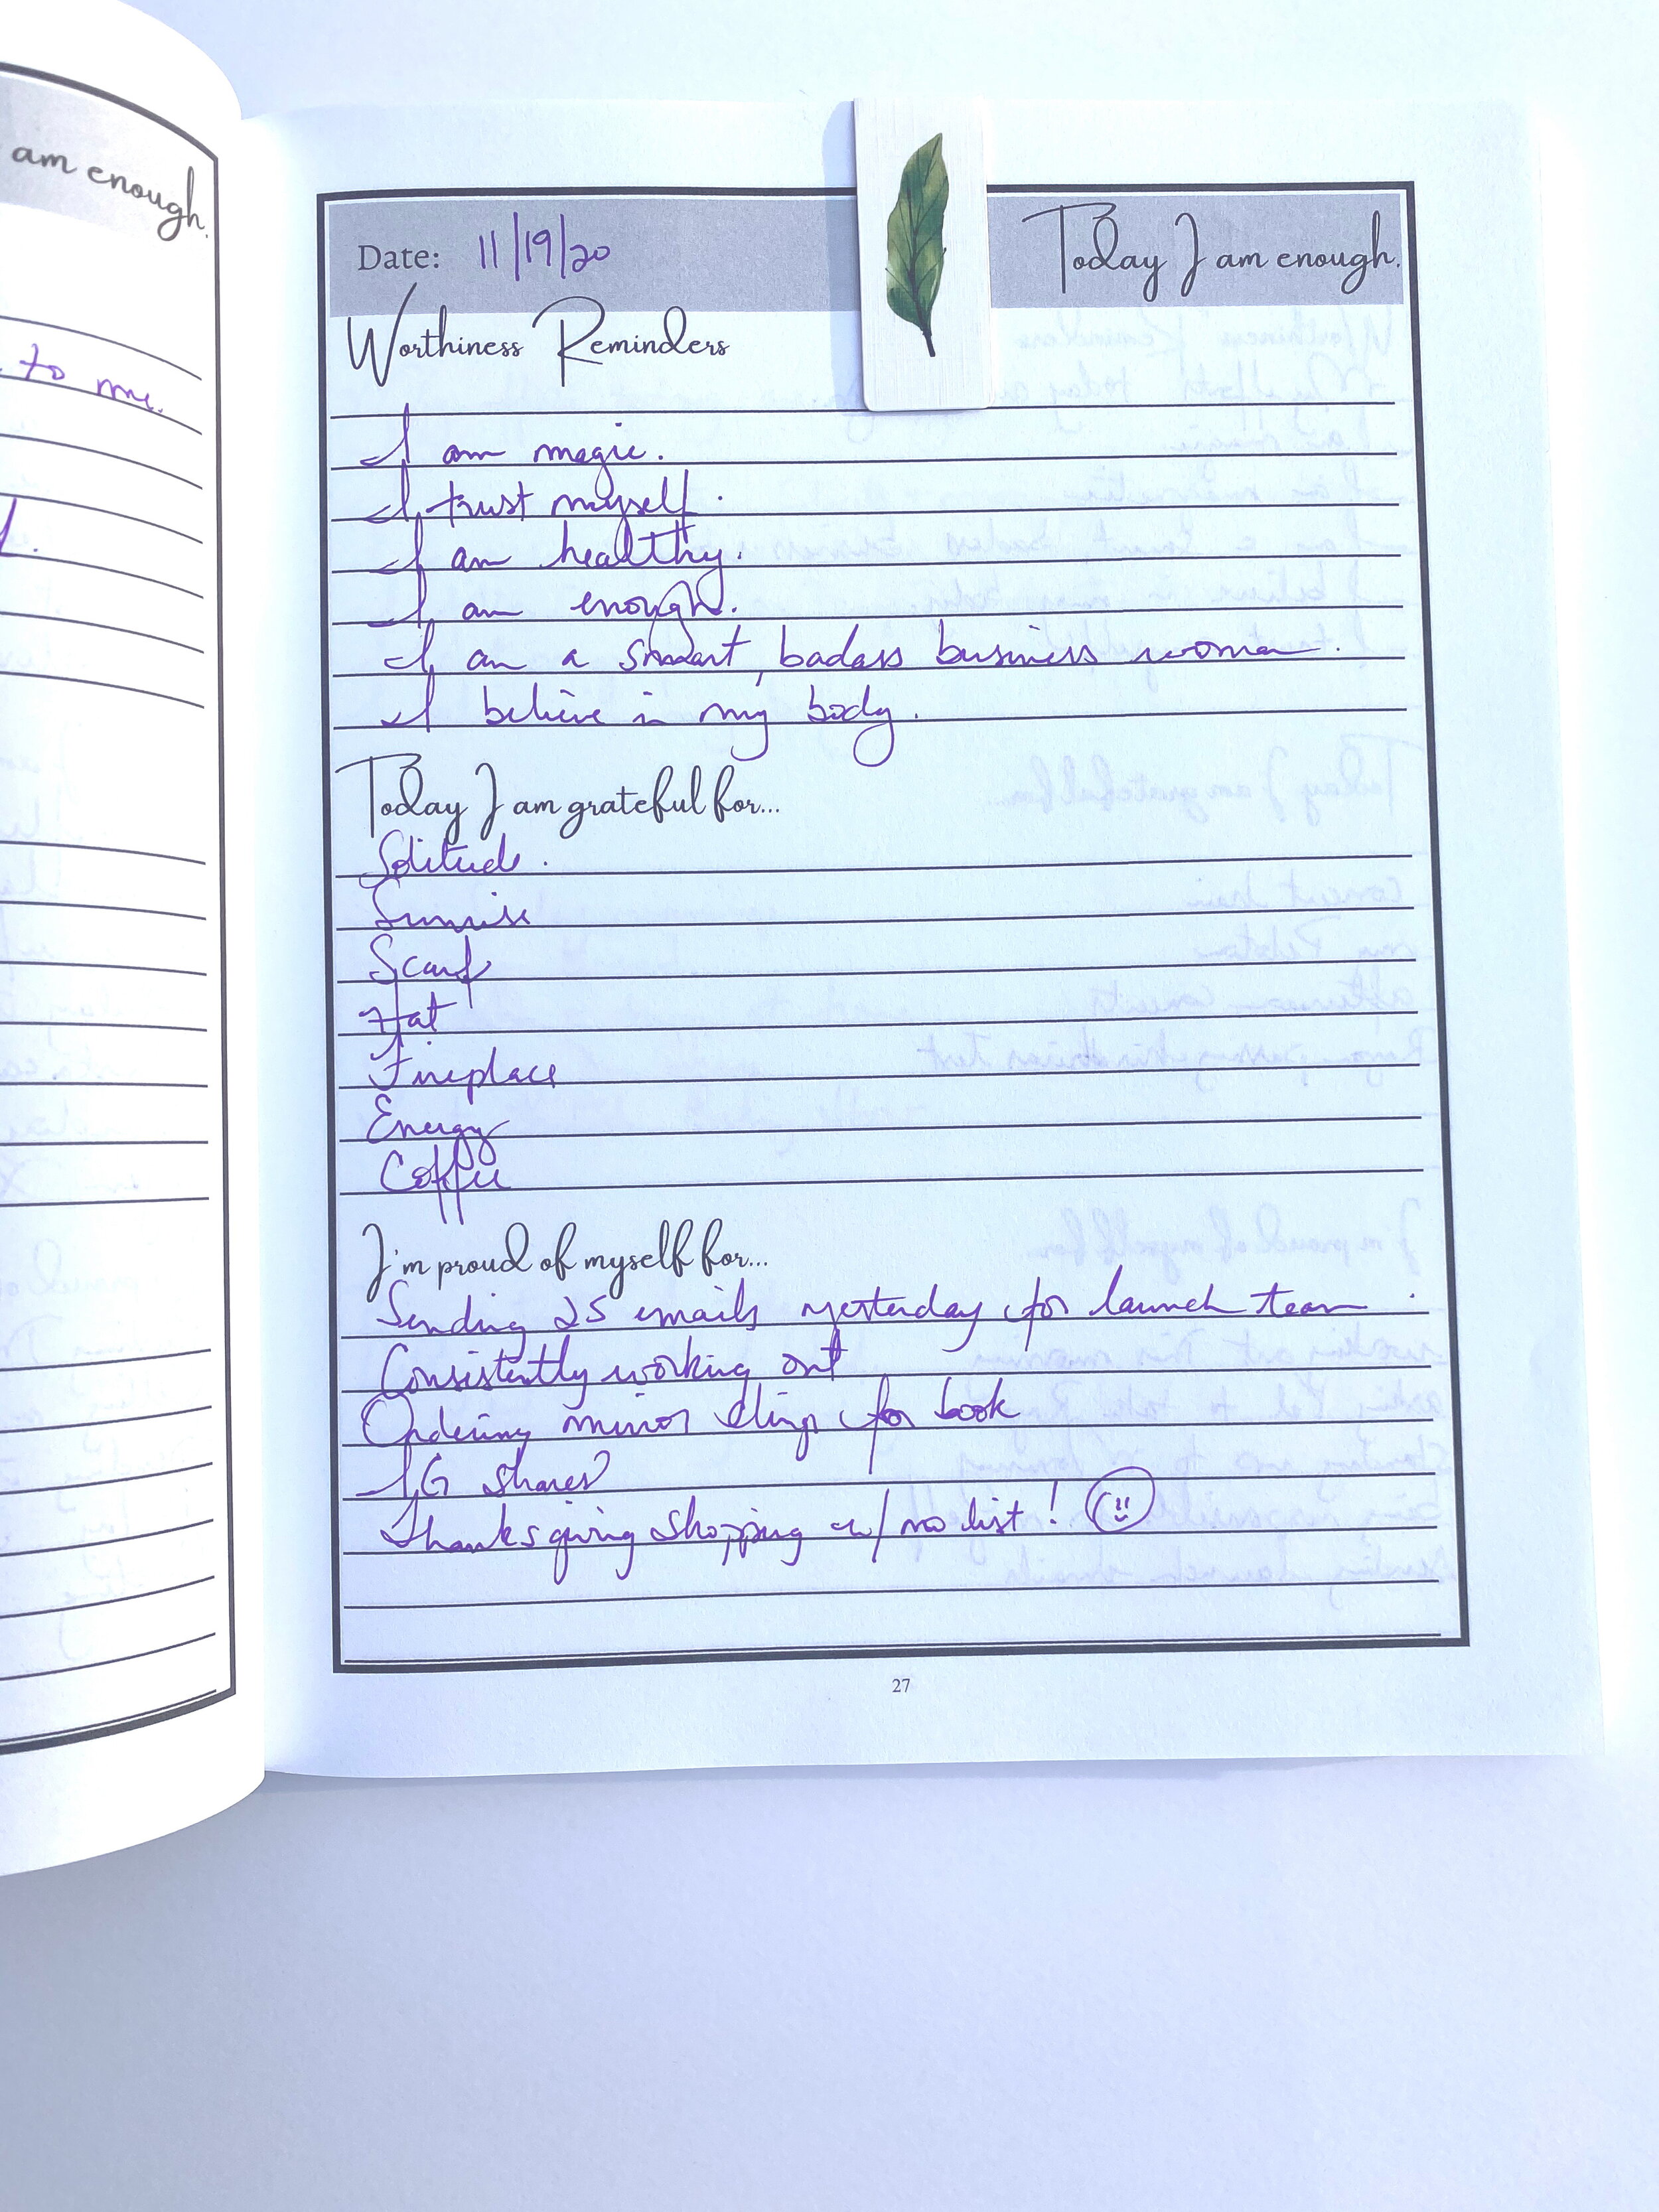 am enough.
to me.
Date: 11/19/20
Today I am enough.
Worthiness Reminders
I am magic.
I trust myself.
I am healthy.
I am enough.
I am a smart, badass business woman.
I believe in my body.
Today I am grateful for...
Solitude.
Sunrise
Scarf
Hat
Fireplace
Energy
Coffee
I'm proud of myself for...
Sending 25 emails yesterday for launch team.
Consistently working out
Ordering mirror clings for book
IG shares
Thanksgiving shopping w/ no list!
27